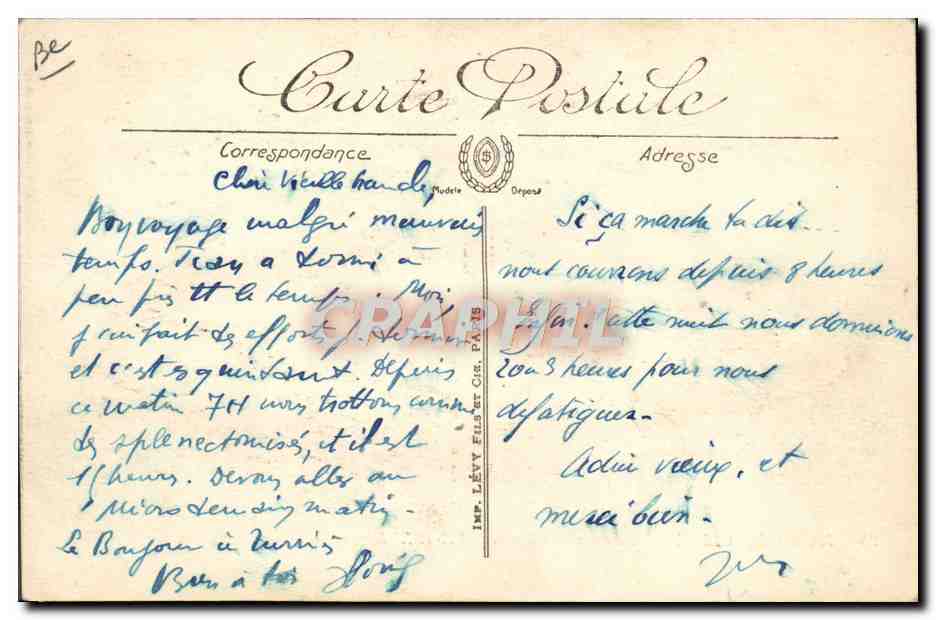 Be
Carte Postale
Correspondance
Adresse
$
Modèle Déposé
Cher Vieille branche,
Bon voyage malgré mauvais
temps. a dormi à
peu près tt le temps. Moi
j'ai fait des efforts p. dormir
et c'est esquintant. Depuis
ce matin 7H nous trottons comme
des splenectomisés, et il est
15 heures. Devons aller au
Micros demain matin.
Le Bonjour à
Bien à toi
IMP. LÉVY FILS ET CIE, PARIS
CPAPHIL
Si ça marche tu dis...
nous courrons depuis 8 heures
cette nuit nous dormions
2 ou 3 heures pour nous
défatiguer.
Adieu vieux, et
merci bien.